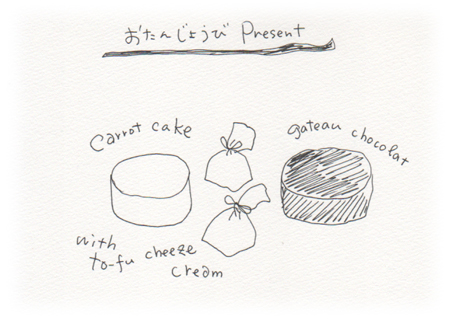 おたんじょうび Present
carrot cake
gateau chocolat
with
to-fu cheeze
cream